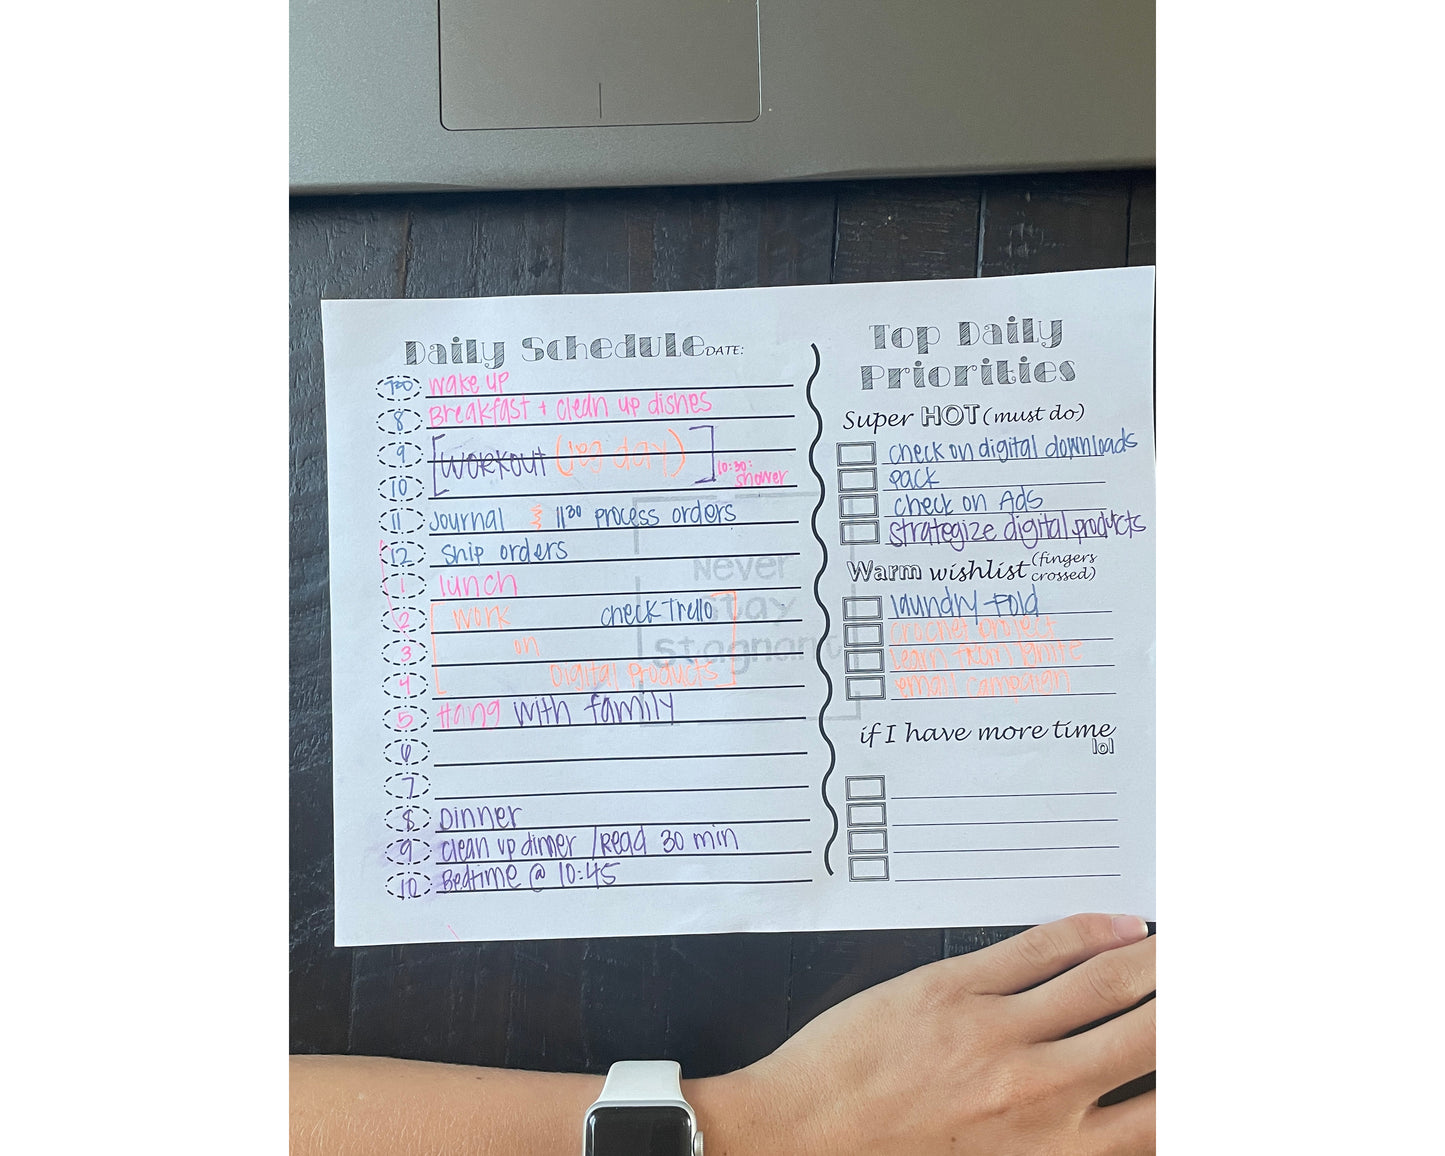 Daily Schedule DATE:
730 wake up
8 Breakfast + clean up dishes
9 [Workout (leg day)]
10 10:30: shower
11 Journal 11 30 process orders
12 Ship orders
1 lunch
2 work check Trello
3 on
4 Digital Products
5 Hang with family
6
7
8 Dinner
9 clean up dinner / Read 30 min
10 Bedtime @ 10:45
Never
Stay
Stagnant
Top Daily
Priorities
Super HOT (must do)
check on digital downloads
pack
check on Ads
strategize digital products
Warm wishlist (fingers crossed)
laundry fold
crochet project
learn from ignite
email campaign
if I have more time
lol